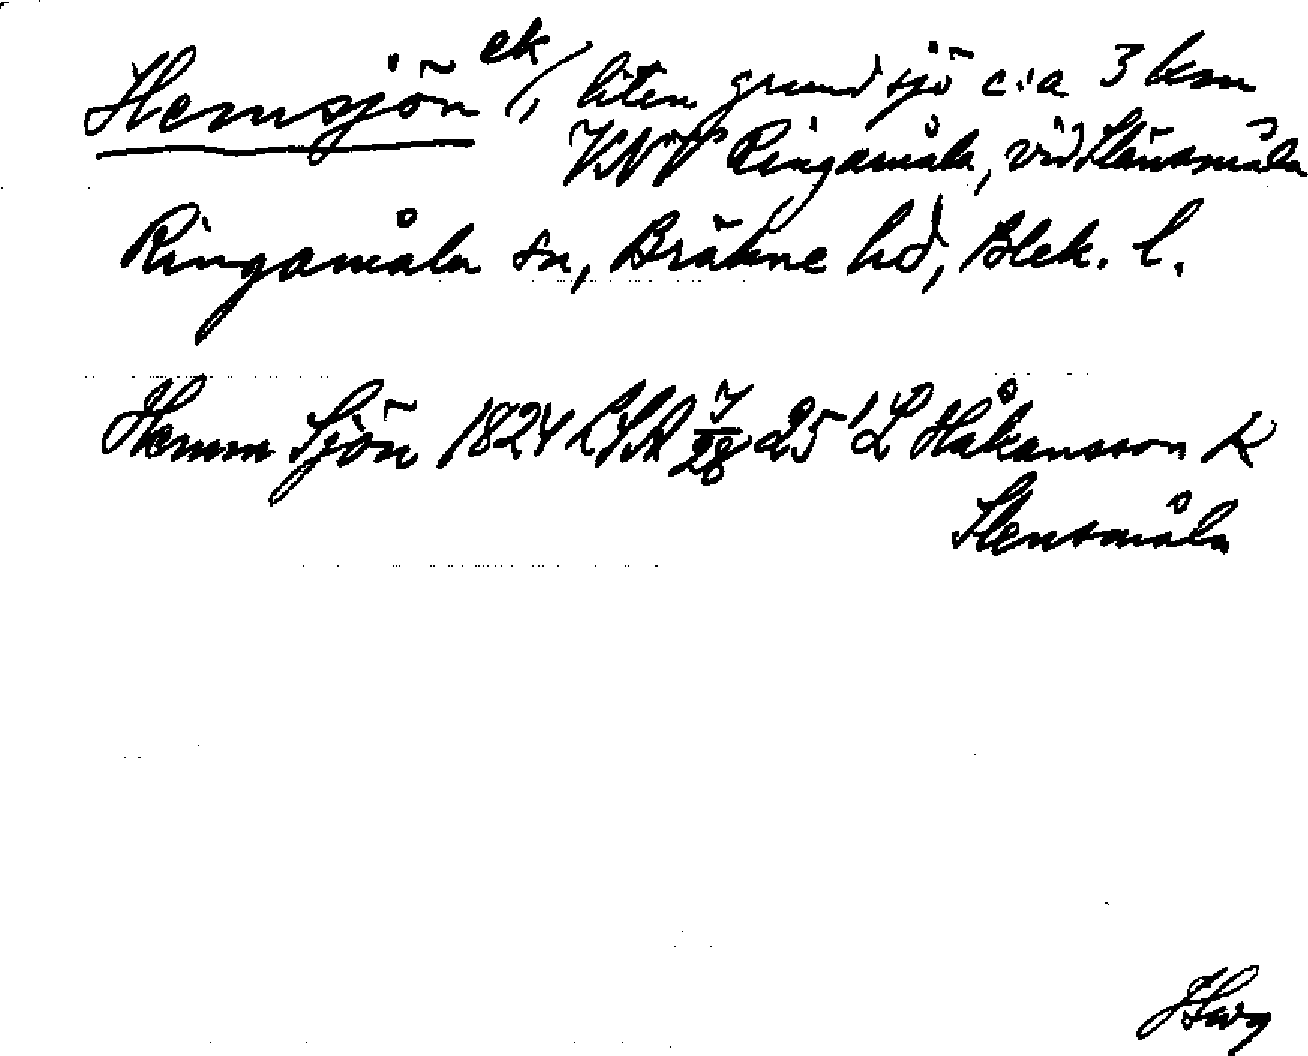 Hemsjön ek /, liten grund sjö c:a 3 km
VNV Ringamåla, vid Stensmåla
Ringamåla sn, Bräkne hd, Blek. l.
Hemm Sjön 1824 LSA 7/28 25 L Håkansson K
Stensmåla